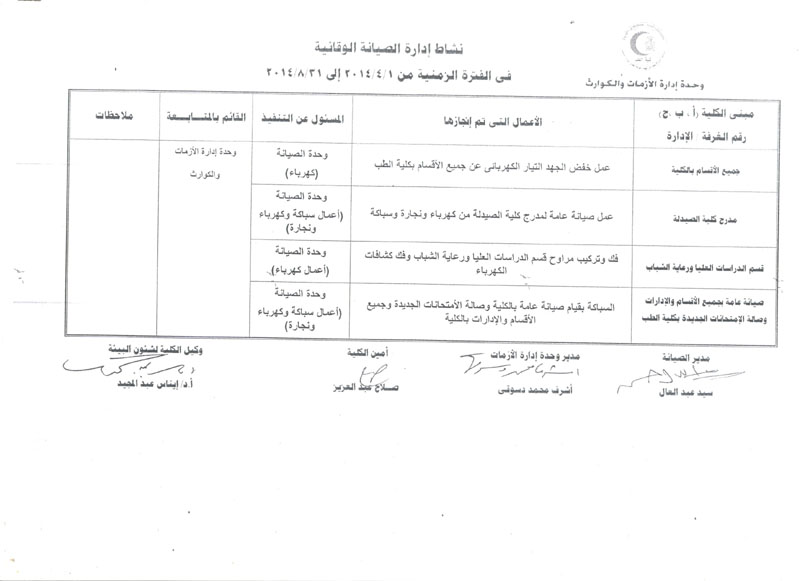 نشاط إدارة الصيانة الوقائية
فى الفترة الزمنية من ٢٠١٤/٤/١ إلى ٢٠١٤/٨/٣١
وحدة إدارة الأزمات والكوارث
مبنى الكلية (أ ، ب ، ج)
رقم الغرفة / الإدارة
الأعمال التى تم إنجازها
المسئول عن التنفيذ
القائم بالمتابعة
ملاحظات
جميع الأقسام بالكلية
عمل خفض الجهد التيار الكهربائى عن جميع الأقسام بكلية الطب
وحدة الصيانة
(كهرباء)
وحدة إدارة الأزمات
والكوارث
مدرج كلية الصيدلة
عمل صيانة عامة لمدرج كلية الصيدلة من كهرباء ونجارة وسباكة
وحدة الصيانة
(أعمال سباكة وكهرباء
ونجارة)
قسم الدراسات العليا ورعاية الشباب
فك وتركيب مراوح قسم الدراسات العليا ورعاية الشباب وفك كشافات
الكهرباء
وحدة الصيانة
(أعمال كهرباء).
صيانة عامة بجميع الأقسام والإدارات
وصالة الإمتحانات الجديدة بكلية الطب
السباكة بقيام صيانة عامة بالكلية وصالة الأمتحانات الجديدة وجميع
الأقسام والإدارات بالكلية
وحدة الصيانة
(أعمال سباكة وكهرباء
ونجارة)
مدير الصيانة
سيد عبد العال
مدير وحدة إدارة الأزمات
أشرف محمد دسوقى
أمين الكلية
صلاح عبد العزيز
وكيل الكلية لشئون البيئة
أ.د/ إيناس عبد المجيد